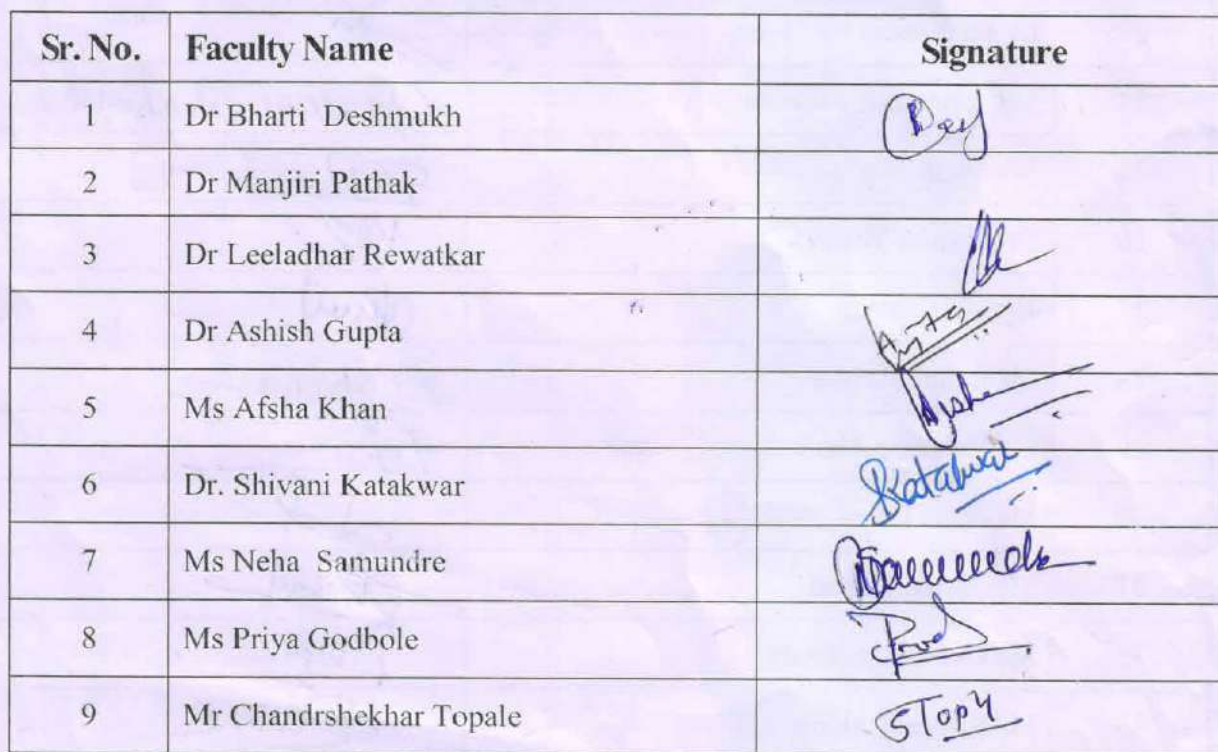 Sr. No. Faculty Name Signature
1 Dr Bharti Deshmukh
2 Dr Manjiri Pathak
3 Dr Leeladhar Rewatkar
4 Dr Ashish Gupta
5 Ms Afsha Khan
6 Dr. Shivani Katakwar SKatakwar
7 Ms Neha Samundre
8 Ms Priya Godbole
9 Mr Chandrshekhar Topale